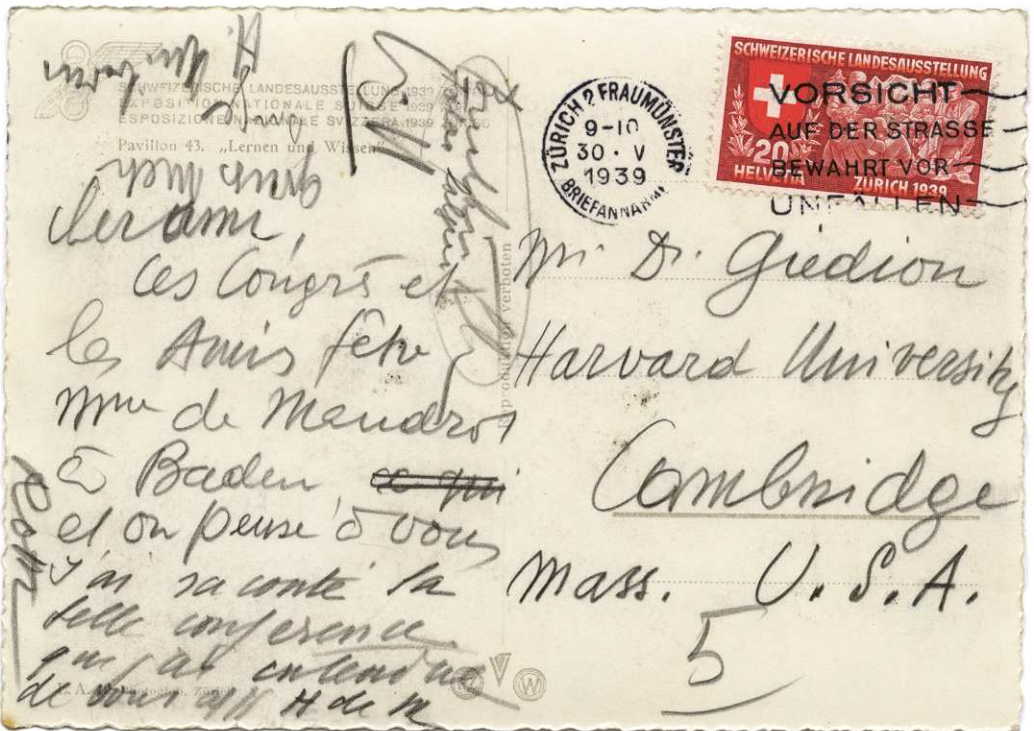 SCHWEIZERISCHE LANDESAUSSTELLUNG 1939
EXPOSITION NATIONALE SUISSE 1939
ESPOSIZIONE NAZIONALE SVIZZERA 1939
Pavillon 43. „Lernen und Wissen"
grüsst Dich
Cher ami,
Ces Congrès et
les Amis fête
Mme de Mandrot
à Baden
et on pense à vous
J'ai raconté la
belle conference
que j'ai entendue
de vous H de M
Roth
Reproduktion verboten
ZÜRICH 2 FRAUMÜNSTER
9-10
30 · V
1939
BRIEFANNAHME
SCHWEIZERISCHE LANDESAUSSTELLUNG
20
HELVETIA ZÜRICH 1939
VORSICHT
AUF DER STRASSE
BEWAHRT VOR
UNFÄLLEN
Mr Dr. Giedion
Harvard University
Cambridge
Mass. U.S.A.
5